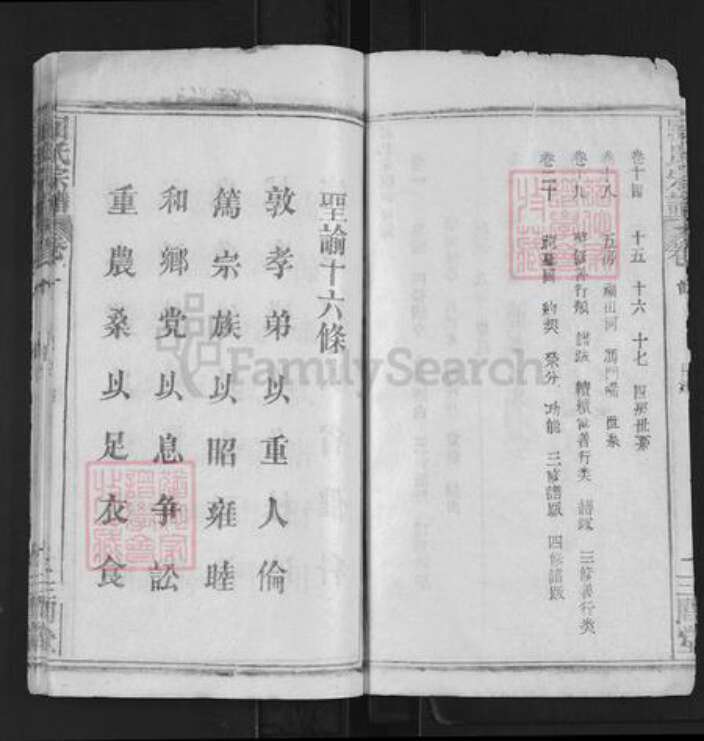 卷十四 十五 十六 十七 四房世系
卷十八 五房 世系
卷十九 善行類 譜跋 續積善行类 譜跋 三修善行类
卷二十 墓圖 約契 祭分 功能 三修譜跋 四修譜跋
聖諭十六條
敦孝弟以重人倫
篤宗族以昭雍睦
和鄉党以息争訟
重農桑以足衣食
氏宗譜
FamilySearch